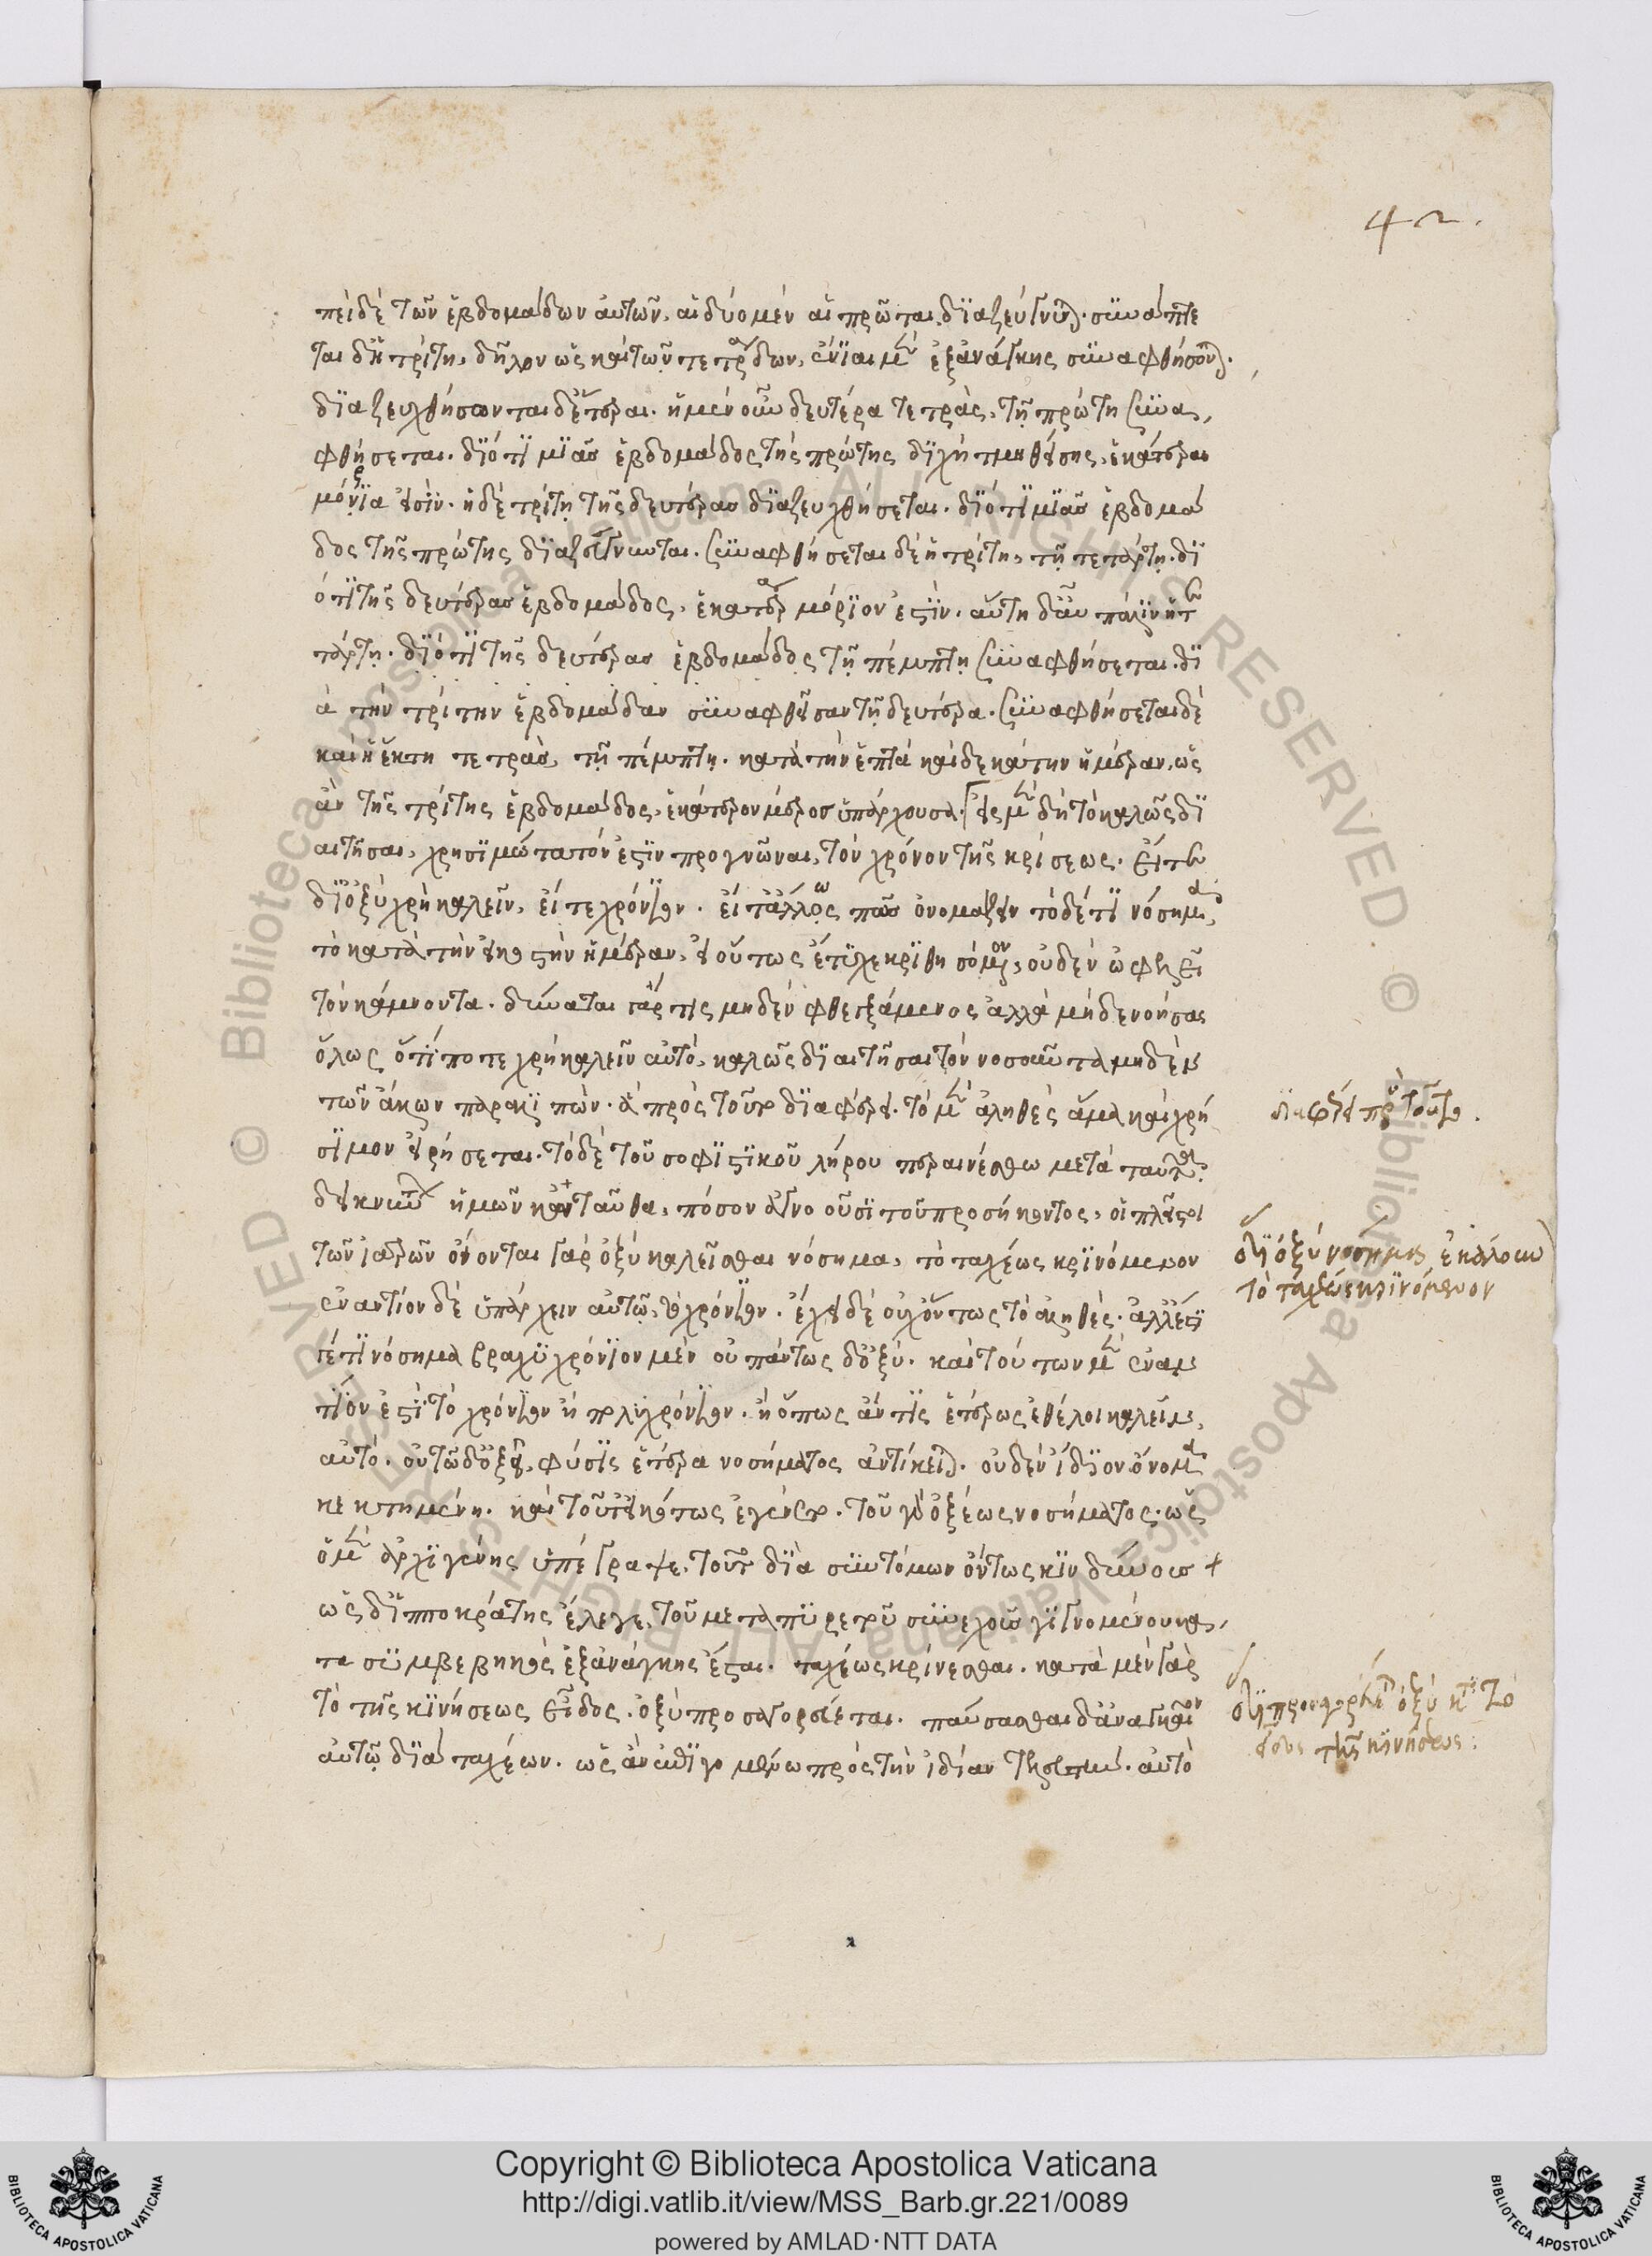 42.
πειδὲ τῶν ἑβδομάδων αὐτῶν, αἱ δύο μὲν αἱ πρῶται διαζεύγνυνται. συνάπτε
ται δ' ἡ τρίτη, δῆλον ὡς καὶ τῶν τετράδων, ἔνιαι μὲν ἐξ ἀνάγκης συναφθήσονται.
διαζευχθήσονται δ' ἕτεραι. ἡ μὲν οὖν δευτέρα τετρὰς, τῇ πρώτῃ συνα
φθήσεται. διότι μιᾶς ἑβδομάδος τῆς πρώτης δίχη τμηθείσης, ἑκάτεραι
μόρια εἰσὶν. ἡ δὲ τρίτη τῆς δευτέρας διαζευχθήσεται. διότι μιᾶς ἑβδομά
δος τῆς πρώτης διαζεύγνυται. συναφθήσεται δὲ ἡ τρίτη, τῇ τετάρτῃ. δι
ότι τῆς δευτέρας ἑβδομάδος, ἑκατέρα μόριον ἐστὶν. αὕτη δ' αὖ πάλιν ἡ τε
τάρτη. διότι τῆς δευτέρας ἑβδομάδος τῇ πέμπτῃ συναφθήσεται. δι
ὰ τὴν τρίτην ἑβδομάδαν συναφθεῖσαν τῇ δευτέρα. συναφθήσεται δὲ
καὶ ἡ ἕκτη τετρὰς, τῇ πέμπτῃ. κατὰ τὴν ἑπτὰ καὶ δεκάτην ἡμέραν, ὡς
ἂν τῆς τρίτης ἑβδομάδος, ἑκάτερον μέρος ὑπάρχουσα. εἰς μὲν δὴ τὸ καλῶς δι
αιτῆσαι, χρησιμώτατόν ἐστιν προγνῶναι, τὸν χρόνον τῆς κρίσεως. εἴτε
δ' ὀξὺ χρὴ καλεῖν, εἴτε χρόνιον. εἴτ' ἄλλως πῶς ὀνομάζειν τὸ δέ τι νόσημα,
τὸ κατὰ τὴν εἰκοστὴν ἡμέραν, εἰ οὕτως ἔτυχε κριθησόμενον, οὐδὲν ὠφελεῖ
τὸν κάμνοντα. δύναται γάρ τις μηδὲν φθεγξάμενος ἀλλὰ μηδὲ νοήσας
ὅλως ὅτι ποτε χρὴ καλεῖν αὐτὸ, καλῶς διαιτῆσαι τὸν νοσοῦντα μηδὲν
τῶν ἀκῶν παραλιπὼν. ἃ πρὸς τοῦτο διαφέρει. τὸ μὲν ἀληθὲς ἅμα καὶ χρή
σιμον εἰρήσεται. τὸ δὲ τοῦ σοφιστικοῦ λήρου περαινέσθω μετὰ ταῦτα
δεικνύντων ἡμῶν κἀνταῦθα, πόσον ἀγνοοῦσι τοῦ προσήκοντος, οἱ πλεῖστοι
τῶν ἰατρῶν οἴονται γὰρ ὀξὺ καλεῖσθαι νόσημα, τὸ ταχέως κρινόμενον
ἐναντίον δὲ ὑπάρχειν αὐτῷ, τὸ χρόνιον. ἔχει δὲ οὐχ οὕτως τὸ ἀληθὲς. ἀλλ' ἔστι
τέ τι νόσημα βραχυχρόνιον μὲν οὐ πάντως δ' ὀξύ. καὶ τούτων μὲν ἐναν
τίον ἐστὶ τὸ χρόνιον ἢ πολυχρόνιον. ἢ ὅπως ἄν τις ἑτέρως ἐθέλοι καλεῖν,
αὐτό. οὐ τῷ δ' ὀξεῖ, φύσις ἑτέρα νοσήματος ἀντίκειται. οὐδὲν ἴδιον ὄνομα
κεκτημένη. καὶ τοῦτ' εἰκότως ἐγένετο. τοῦ γὰρ ὀξέως νοσήματος. ὡς
ὁ μὲν ἀρχιγένης ὑπέγραψε, τοῦτο διὰ συντόμων ὄντως κινδύνοις +
ὡς δ' ἱπποκράτης ἔλεγε, τοῦ μετα πυρετοῦ συνεχοῦς γιγνομένου κα
τα συμβεβηκὸς ἐξ ἀνάγκης ἔσται. ταχέως κρίνεσθαι. κατὰ μὲν γὰρ
τὸ τῆς κινήσεως εἶδος. ὀξὺ προσαγορεύεται. παύσασθαι δ' ἀναγκαῖον
αὐτῷ διὰ ταχέων. ὡς ἂν ἐπειγομένω πρὸς τὴν ἰδίαν τελευτὴν. αὐτὸ
διαφέρει πρὸς τοῦτο.
ὅτι ὀξὺ νόσημα ἐκάλουν
τὸ ταχέως κρινόμενον
ὅτι προσαγορεύεται ὀξὺ κατὰ τὸ
εἶδος τῆς κινήσεως:
© Biblioteca Apostolica Vaticana ALL RIGHTS RESERVED
Copyright © Biblioteca Apostolica Vaticana
http://digi.vatlib.it/view/MSS_Barb.gr.221/0089
powered by AMLAD·NTT DATA
BIBLIOTECA APOSTOLICA VATICANA
BIBLIOTECA APOSTOLICA VATICANA